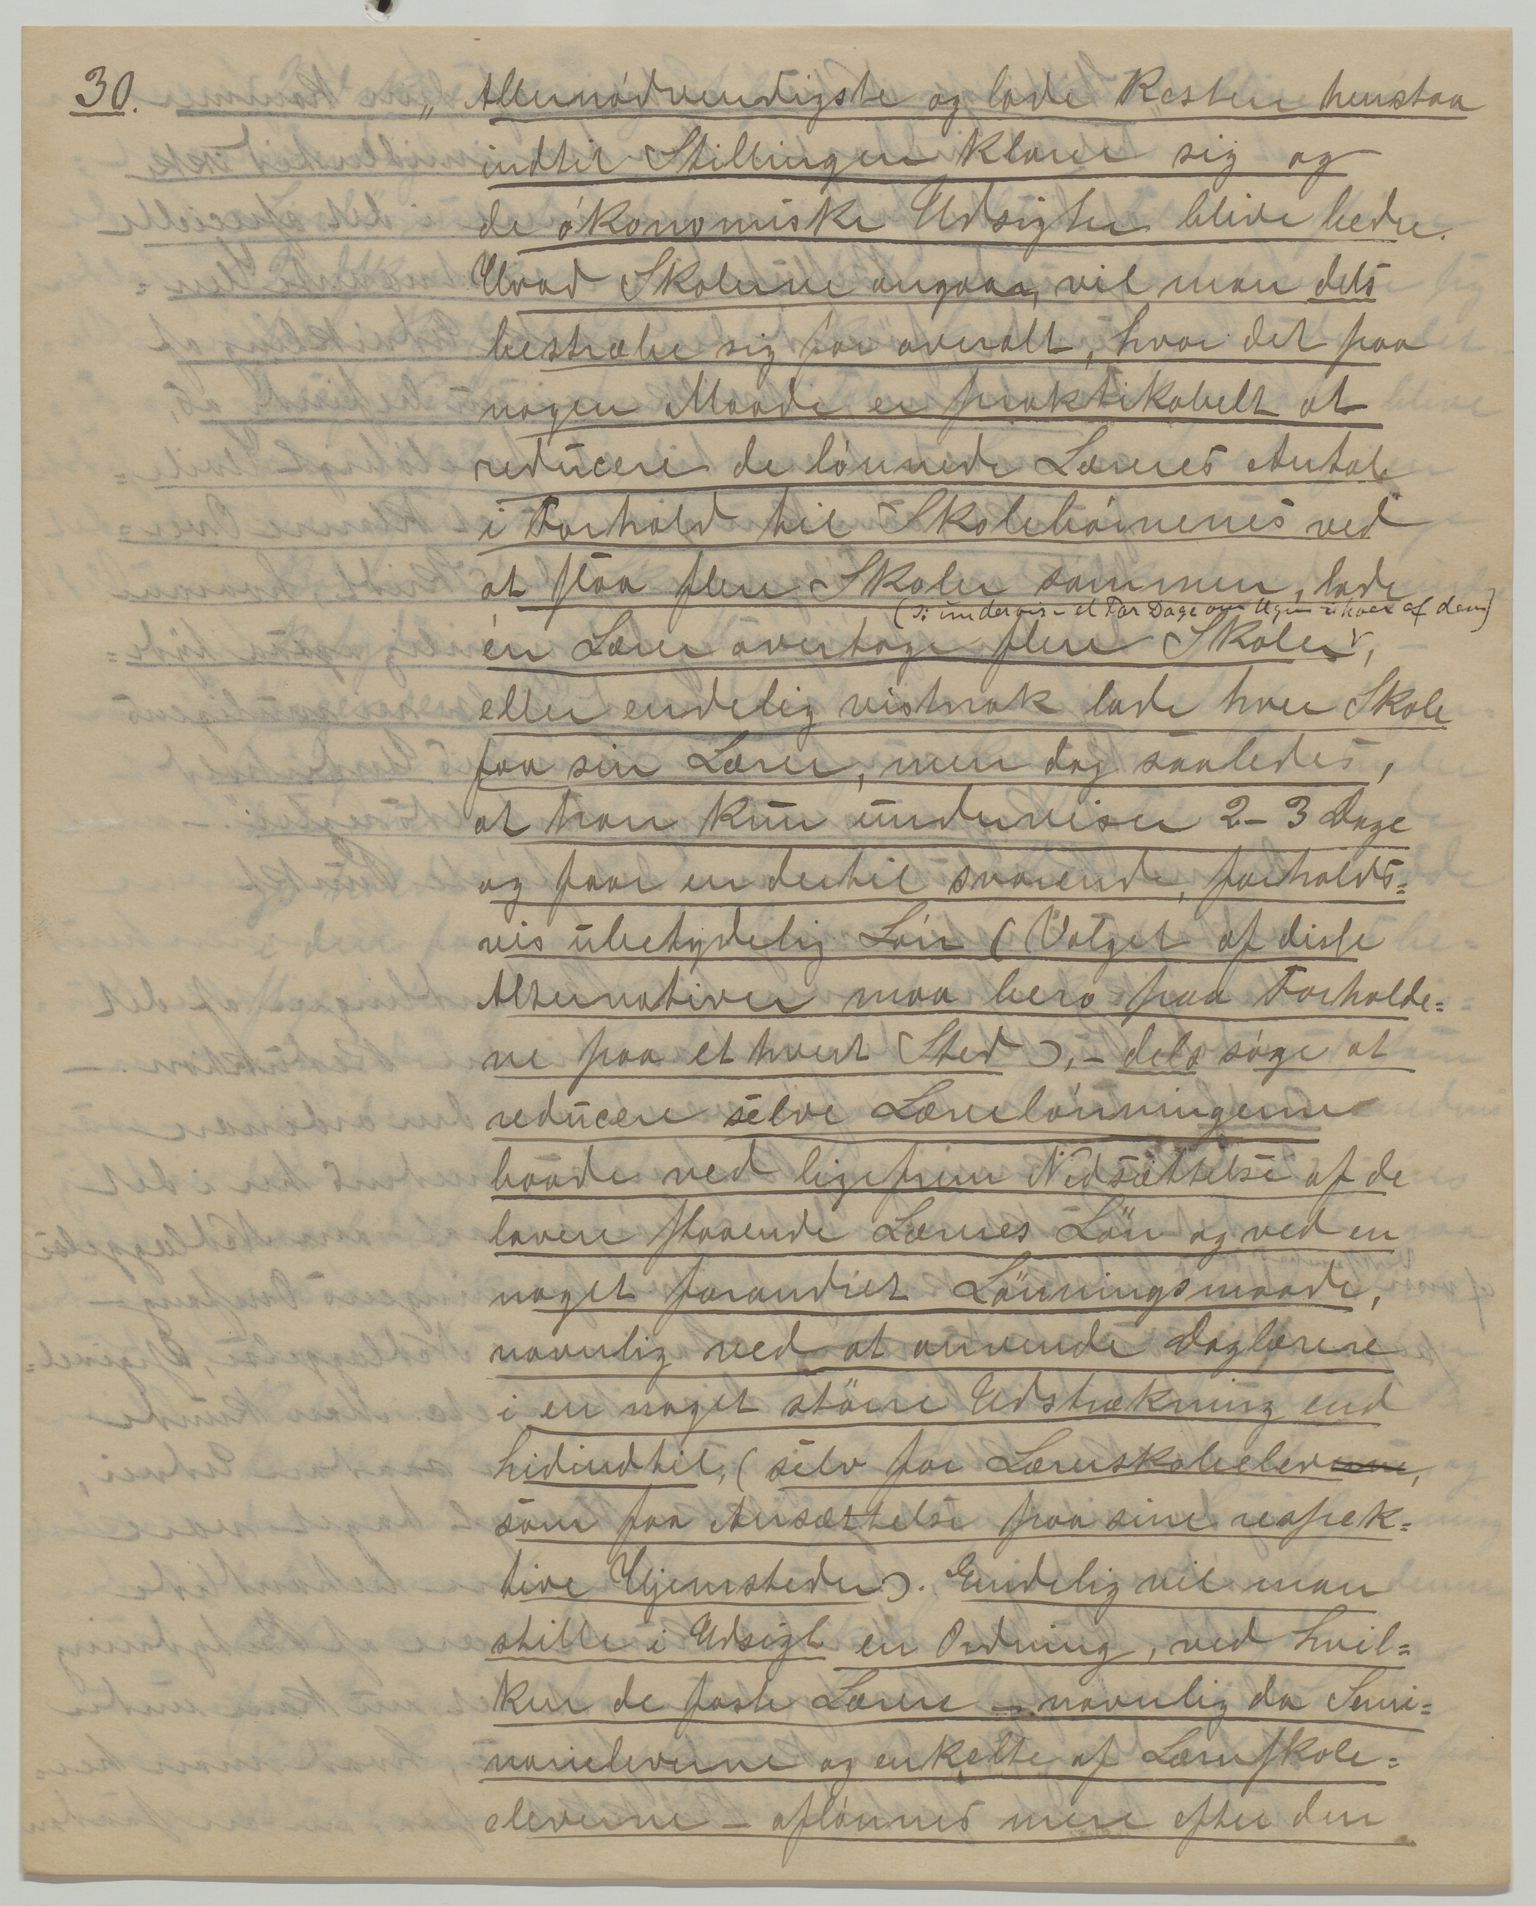 30.
„ Allernødvendigste og lade Resten henstaa
indtil Stillingen klarer sig og
de økonomiske Udsigter blive bedre.
Hvad Skolerne angaar, vil man dels
bestræbe sig for overalt, hvor det paa
nogen Maade er praktikabelt at
reducere de lønnede Læreres Antal
i Forhold til Skolebørnenes ved
at slaa flere Skoler sammen, lade
(ɔ: undervise et Par Dage om Ugen i hver af dem)
én Lærer overtage flere Skoler,
eller endelig vistnok lade hver Skole
faa sin Lærer, men dog saaledes,
at han kun underviser 2-3 Dage
og faar en dertil svarende, forholds=
vis ubetydelig Løn (Valget af disse
Alternativer maa bero paa Forholde=
ne paa et hvert Sted), - dels søge at
reducere selve Lærerlønningerne
baade ved ligefrem Nedsættelse af de
lavere staaende Læreres Lön og ved en
noget forandret Lönningsmaade,
navnlig ved at anvende Daglærere
i en noget större Udstrækning end
hidindtil, (selv for Lærerskoleelever,
som faa Ansættelse paa sine respek=
tive Hjemsteder). Endelig vil man
stille i Udsigt en Ordning, ved hvil=
ken de faste Lærere - navnlig da Semi=
narieleverne og enkelte af Lærerskole=
eleverne - aflønnes mere efter den